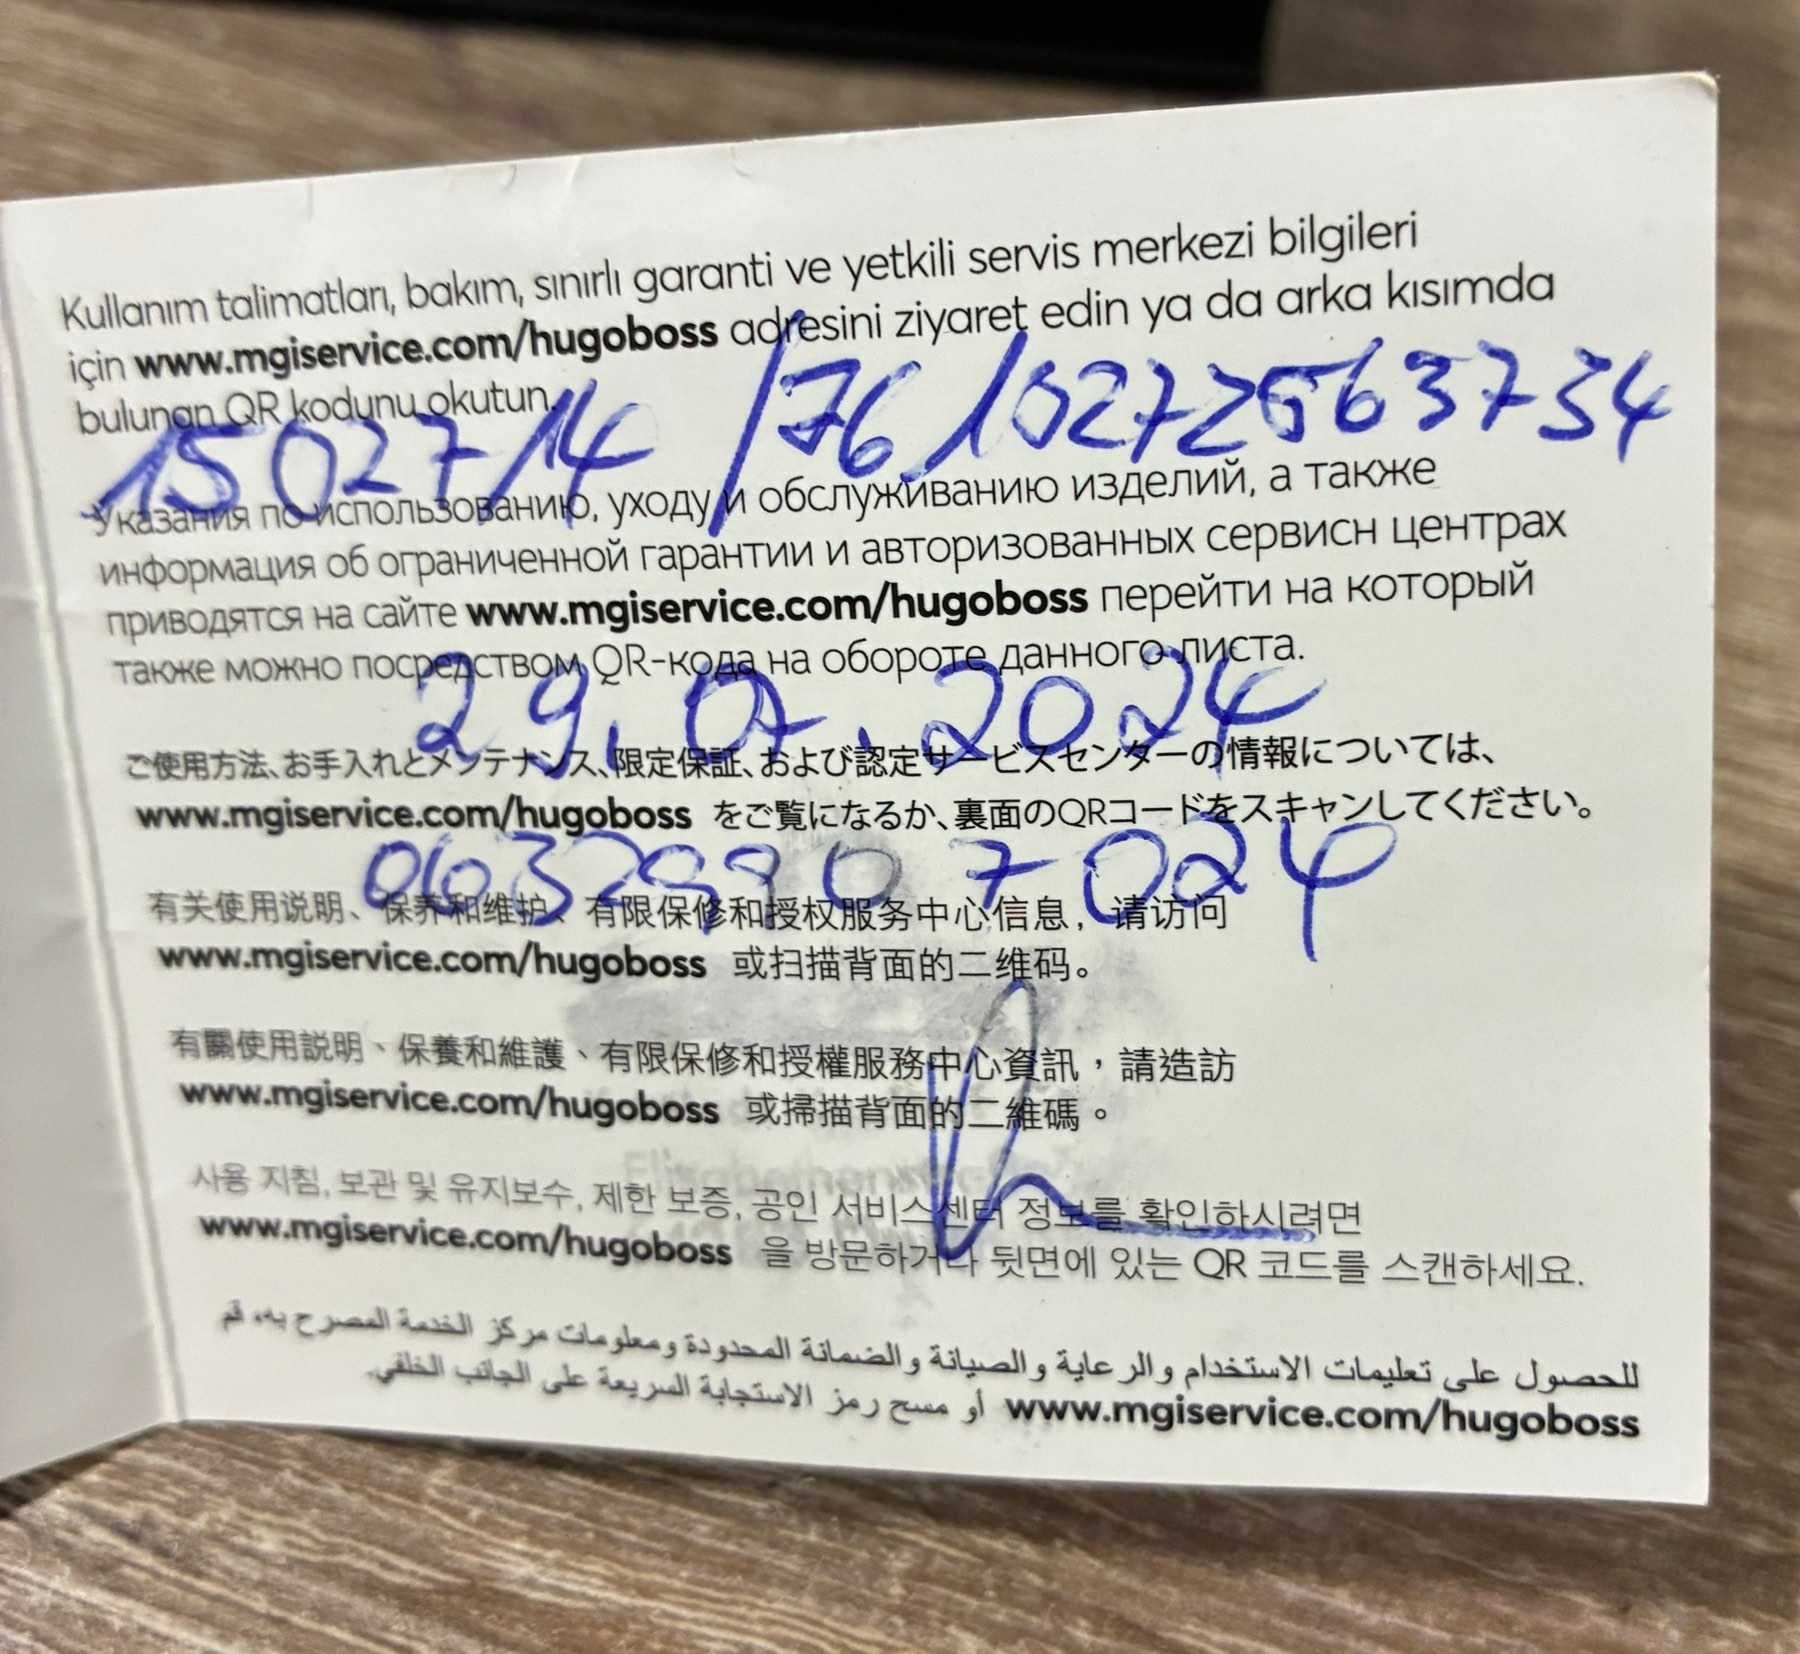 Kullanım talimatları, bakım, sınırlı garanti ve yetkili servis merkezi bilgileri
için www.mgiservice.com/hugoboss adresini ziyaret edin ya da arka kısımda
bulunan QR kodunu okutun.
1502714 /7613272563734
Указания по использованию, уходу и обслуживанию изделий, а также
информация об ограниченной гарантии и авторизованных сервисн центрах
приводятся на сайте www.mgiservice.com/hugoboss перейти на который
также можно посредством QR-кода на обороте данного листа.
29.07.2024
ご使用方法、お手入れとメンテナンス、限定保証、および認定サービスセンターの情報については、
www.mgiservice.com/hugoboss をご覧になるか、裏面のQRコードをスキャンしてください。
06329907024
有关使用说明、保养和维护、有限保修和授权服务中心信息，请访问
www.mgiservice.com/hugoboss 或扫描背面的二维码。
有關使用説明、保養和維護、有限保修和授權服務中心資訊，請造訪
www.mgiservice.com/hugoboss 或掃描背面的二維碼。
사용 지침, 보관 및 유지보수, 제한 보증, 공인 서비스센터 정보를 확인하시려면
www.mgiservice.com/hugoboss 을 방문하거나 뒷면에 있는 QR 코드를 스캔하세요.
للحصول على تعليمات الاستخدام والرعاية والصيانة والضمانة المحدودة ومعلومات مركز الخدمة المصرح به، قم
www.mgiservice.com/hugoboss أو مسح رمز الاستجابة السريعة على الجانب الخلفي.